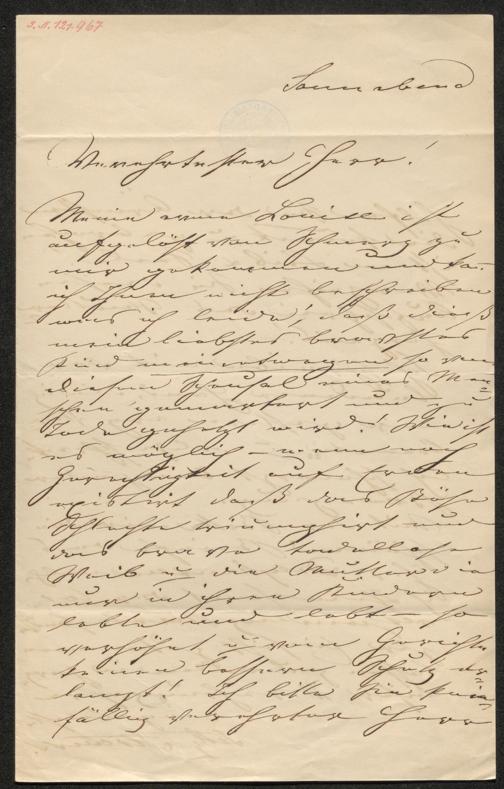 I.N. 121.967
Sonnabend
Verehrtester Herr!
Meine arme Louise ist
aufgelöst von Schmerz zu
mir gekommen und kan̄
ich Ihnen nicht beschreiben
was ich leide, daß dieß
mein liebstes bravstes
Kind meinetwegen so von
diesem Scheusal eines Men=
schen gemartert und zu
Tode gehetzt wird! Wie ist
es möglich – wenn noch
Gerechtigkeit auf Erden
existirt daß das Böse
Schlechte triumphirt und
das brave tadellose
Weib u die Mutter die
nur in ihren Kindern
lebte und lebt – so
verhöhnt u vom Gerichte
keinen bessern Schutz er=
langt! Ich bitte Sie knie=
fällig verehrter Herr